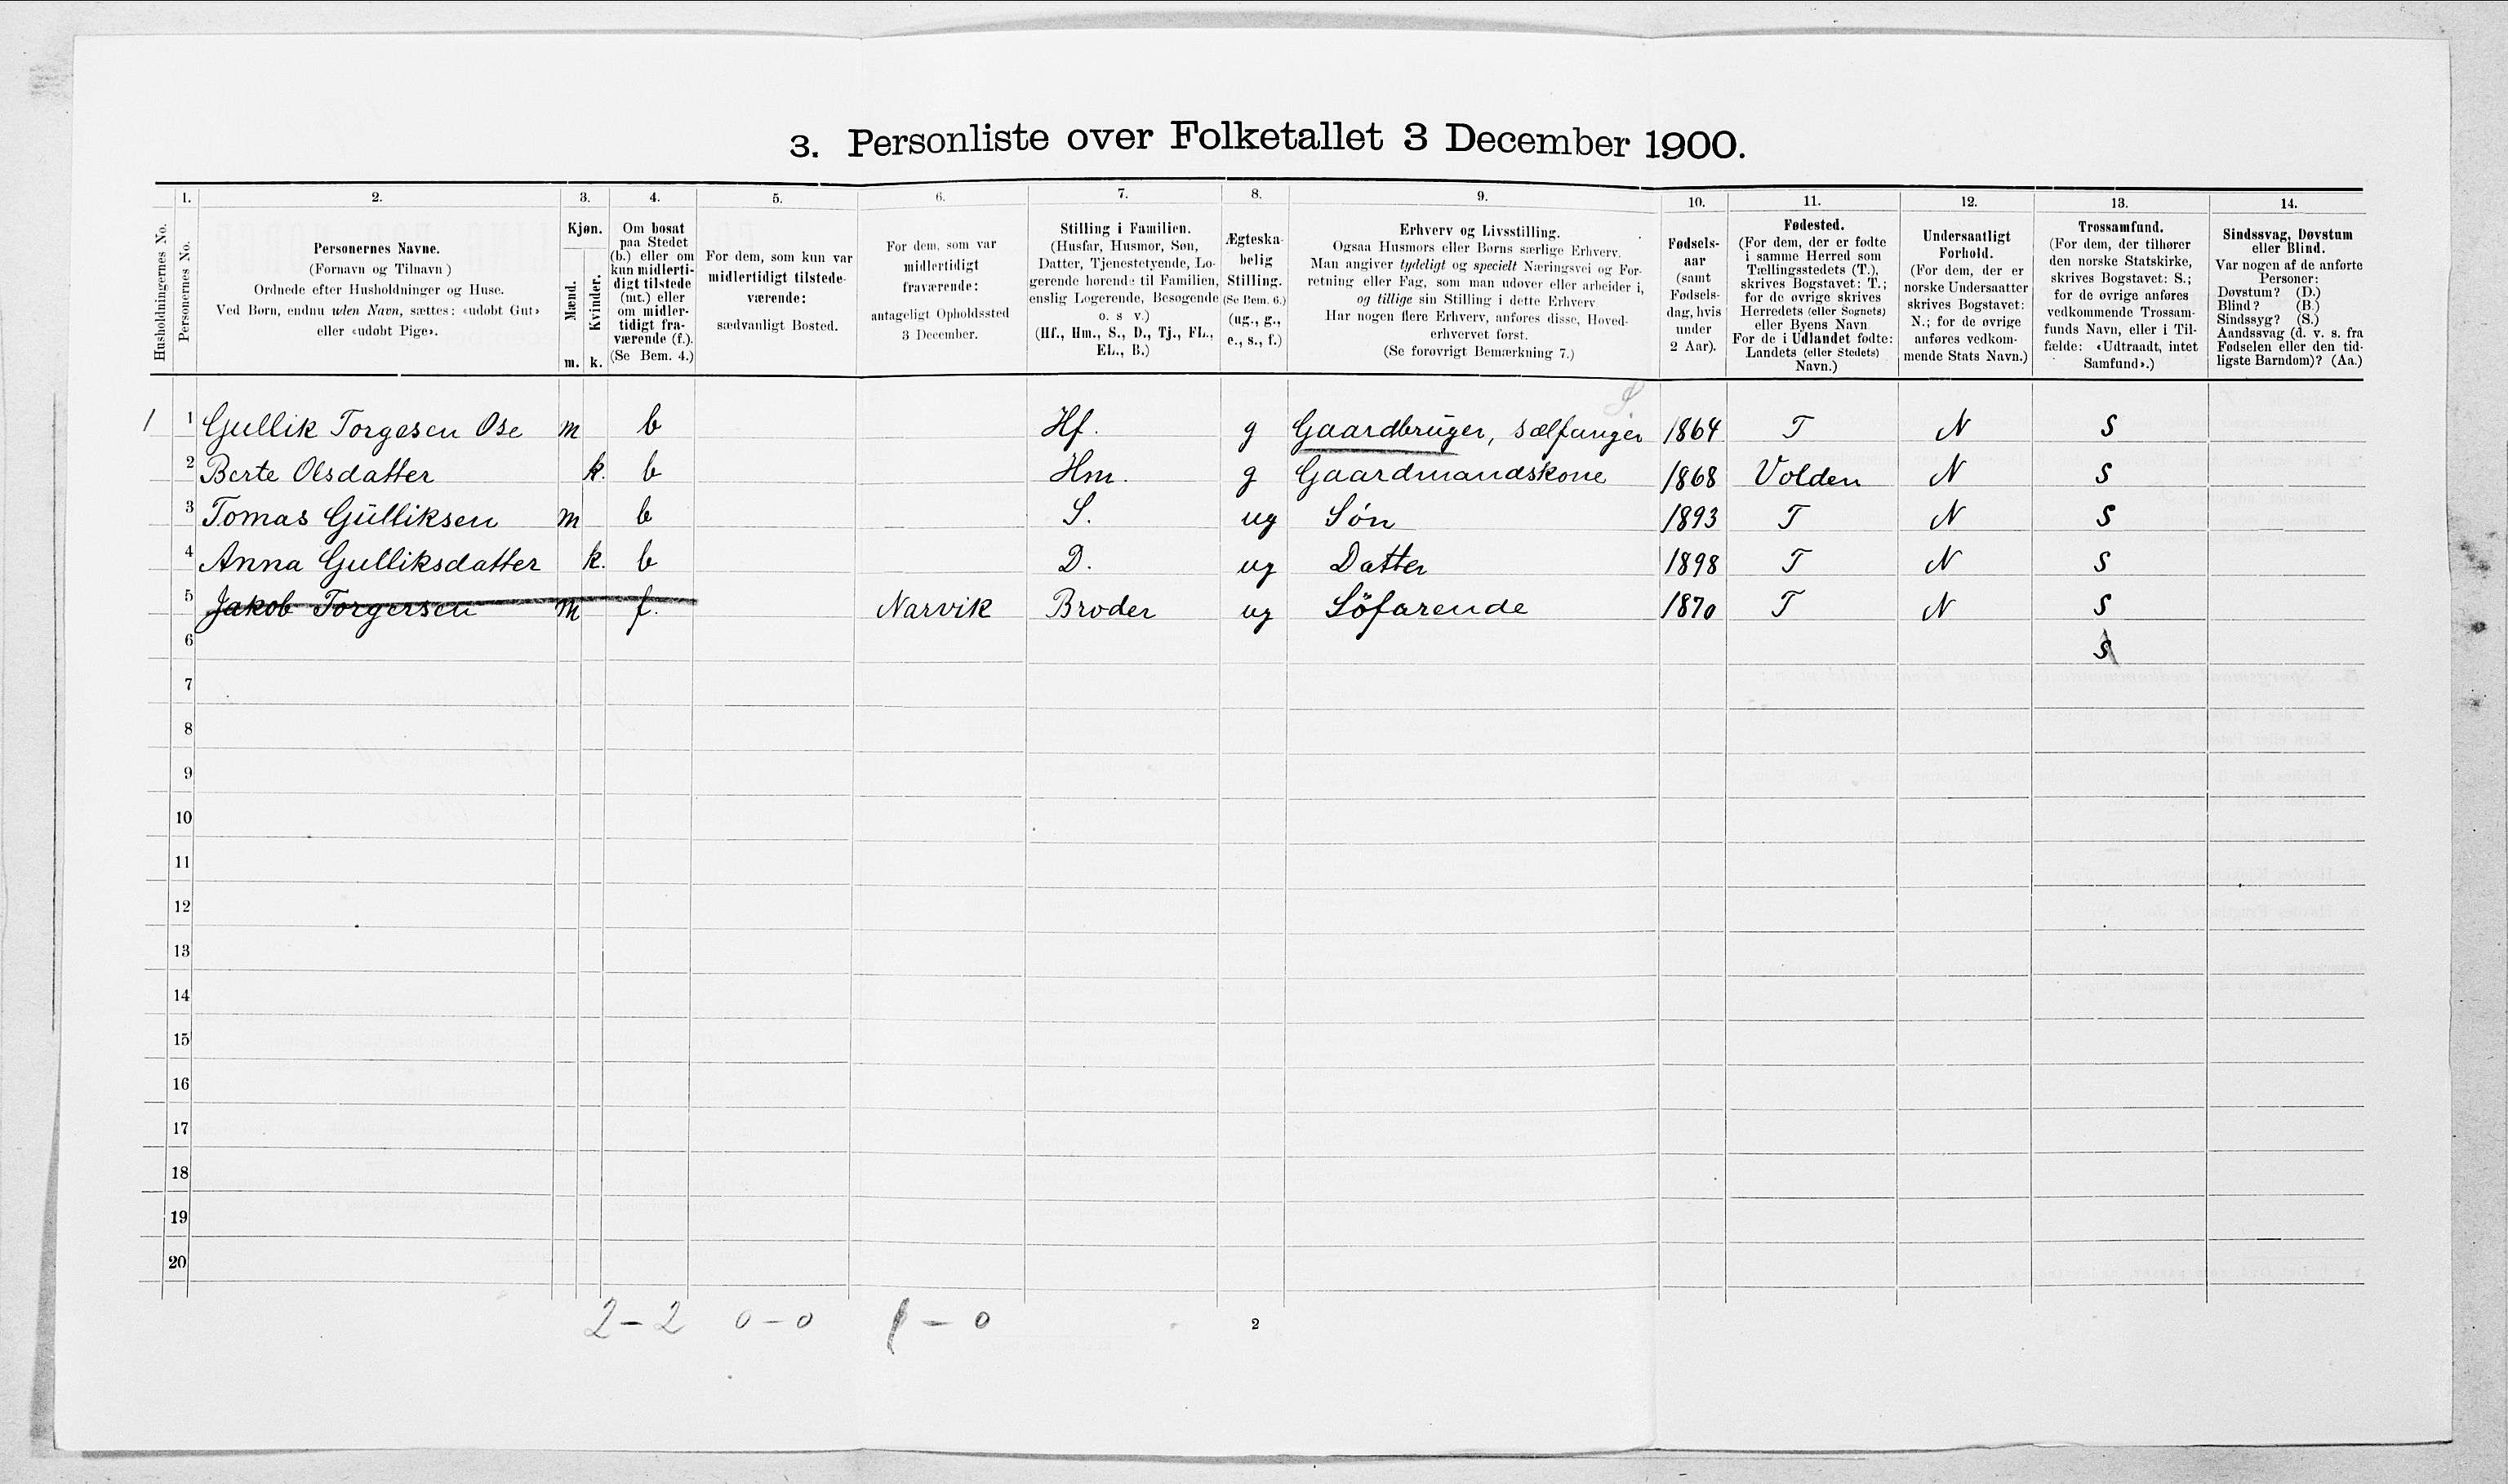 3. Personliste over Folketallet 3 December 1900.
1. 2. 3. 4. 5. 6. 7. 8. 9. 10. 11. 12. 13. 14.
Husholdningernes No.
Personernes No.
Personernes Navne.
(Fornavn og Tilnavn )
Ordnede efter Husholdninger og Huse.
Ved Børn, endnu uden Navn, sættes: «udøbt Gut»
eller «udøbt Pige».
Kjøn.
Mænd.
Kvinder.
m. k.
Om bosat
paa Stedet
(b.) eller om
kun midlerti-
digt tilstede
(mt.) eller
om midler-
tidigt fra-
værende (f.).
(Se Bem. 4.)
For dem, som kun var
midlertidigt tilstede-
værende:
sædvanligt Bosted.
For dem, som var
midlertidigt
fraværende:
antageligt Opholdssted
3 December.
Stilling i Familien.
(Husfar, Husmor, Søn,
Datter, Tjenestetyende, Lo-
gerende hørende til Familien,
enslig Logerende, Besøgende
o. s v.)
(Hf., Hm., S., D., Tj., FL.,
EL., B.)
Ægteska-
belig
Stilling.
(Se Bem. 6.)
(ug., g.,
e., s., f.)
Erhverv og Livsstilling.
Ogsaa Husmors eller Børns særlige Erhverv.
Man angiver tydeligt og specielt Næringsvei og For-
retning eller Fag, som man udøver eller arbeider i,
og tillige sin Stilling i dette Erhverv
Har nogen flere Erhverv, anføres disse, Hoved-
erhvervet først.
(Se forøvrigt Bemærkning 7.)
Fødsels-
aar
(samt
Fødsels-
dag, hvis
under
2 Aar).
Fødested.
(For dem, der er fødte
i samme Herred som
Tællingsstedets (T.),
skrives Bogstavet: T.;
for de øvrige skrives
Herredets (eller Sognets)
eller Byens Navn
For de i Udlandet fødte:
Landets (eller Stedets)
Navn.)
Undersaatligt
Forhold.
(For dem, der er
norske Undersaatter
skrives Bogstavet:
N.; for de øvrige
anføres vedkom-
mende Stats Navn.)
Trossamfund.
(For dem, der tilhører
den norske Statskirke,
skrives Bogstavet: S.;
for de øvrige anføres
vedkommende Trossam-
funds Navn, eller i Til-
fælde: «Udtraadt, intet
Samfund».)
Sindssvag, Døvstum
eller Blind.
Var nogen af de anførte
Personer:
Døvstum? (D.)
Blind? (B.)
Sindssyg? (S.)
Aandssvag (d. v. s. fra
Fødselen eller den tid-
ligste Barndom)? (Aa.)
1 1 Gullik Torgesen Ose m b Hf. g Gaardbruger, sælfanger 1864 T N S
2 Berte Olsdatter k. b Hm. g Gaardmandskone 1868 Volden N S
3 Tomas Gulliksen m b S. ug Søn 1893 T N S
4 Anna Gulliksdatter k. b D. ug Datter 1898 T N S
5 Jakob Torgersen m f. Narvik Broder ug Söfarende 1870 T N S
6 S
7
8
9
10
11
12
13
14
15
16
17
18
19
20
2-2 0-0 1-0
2